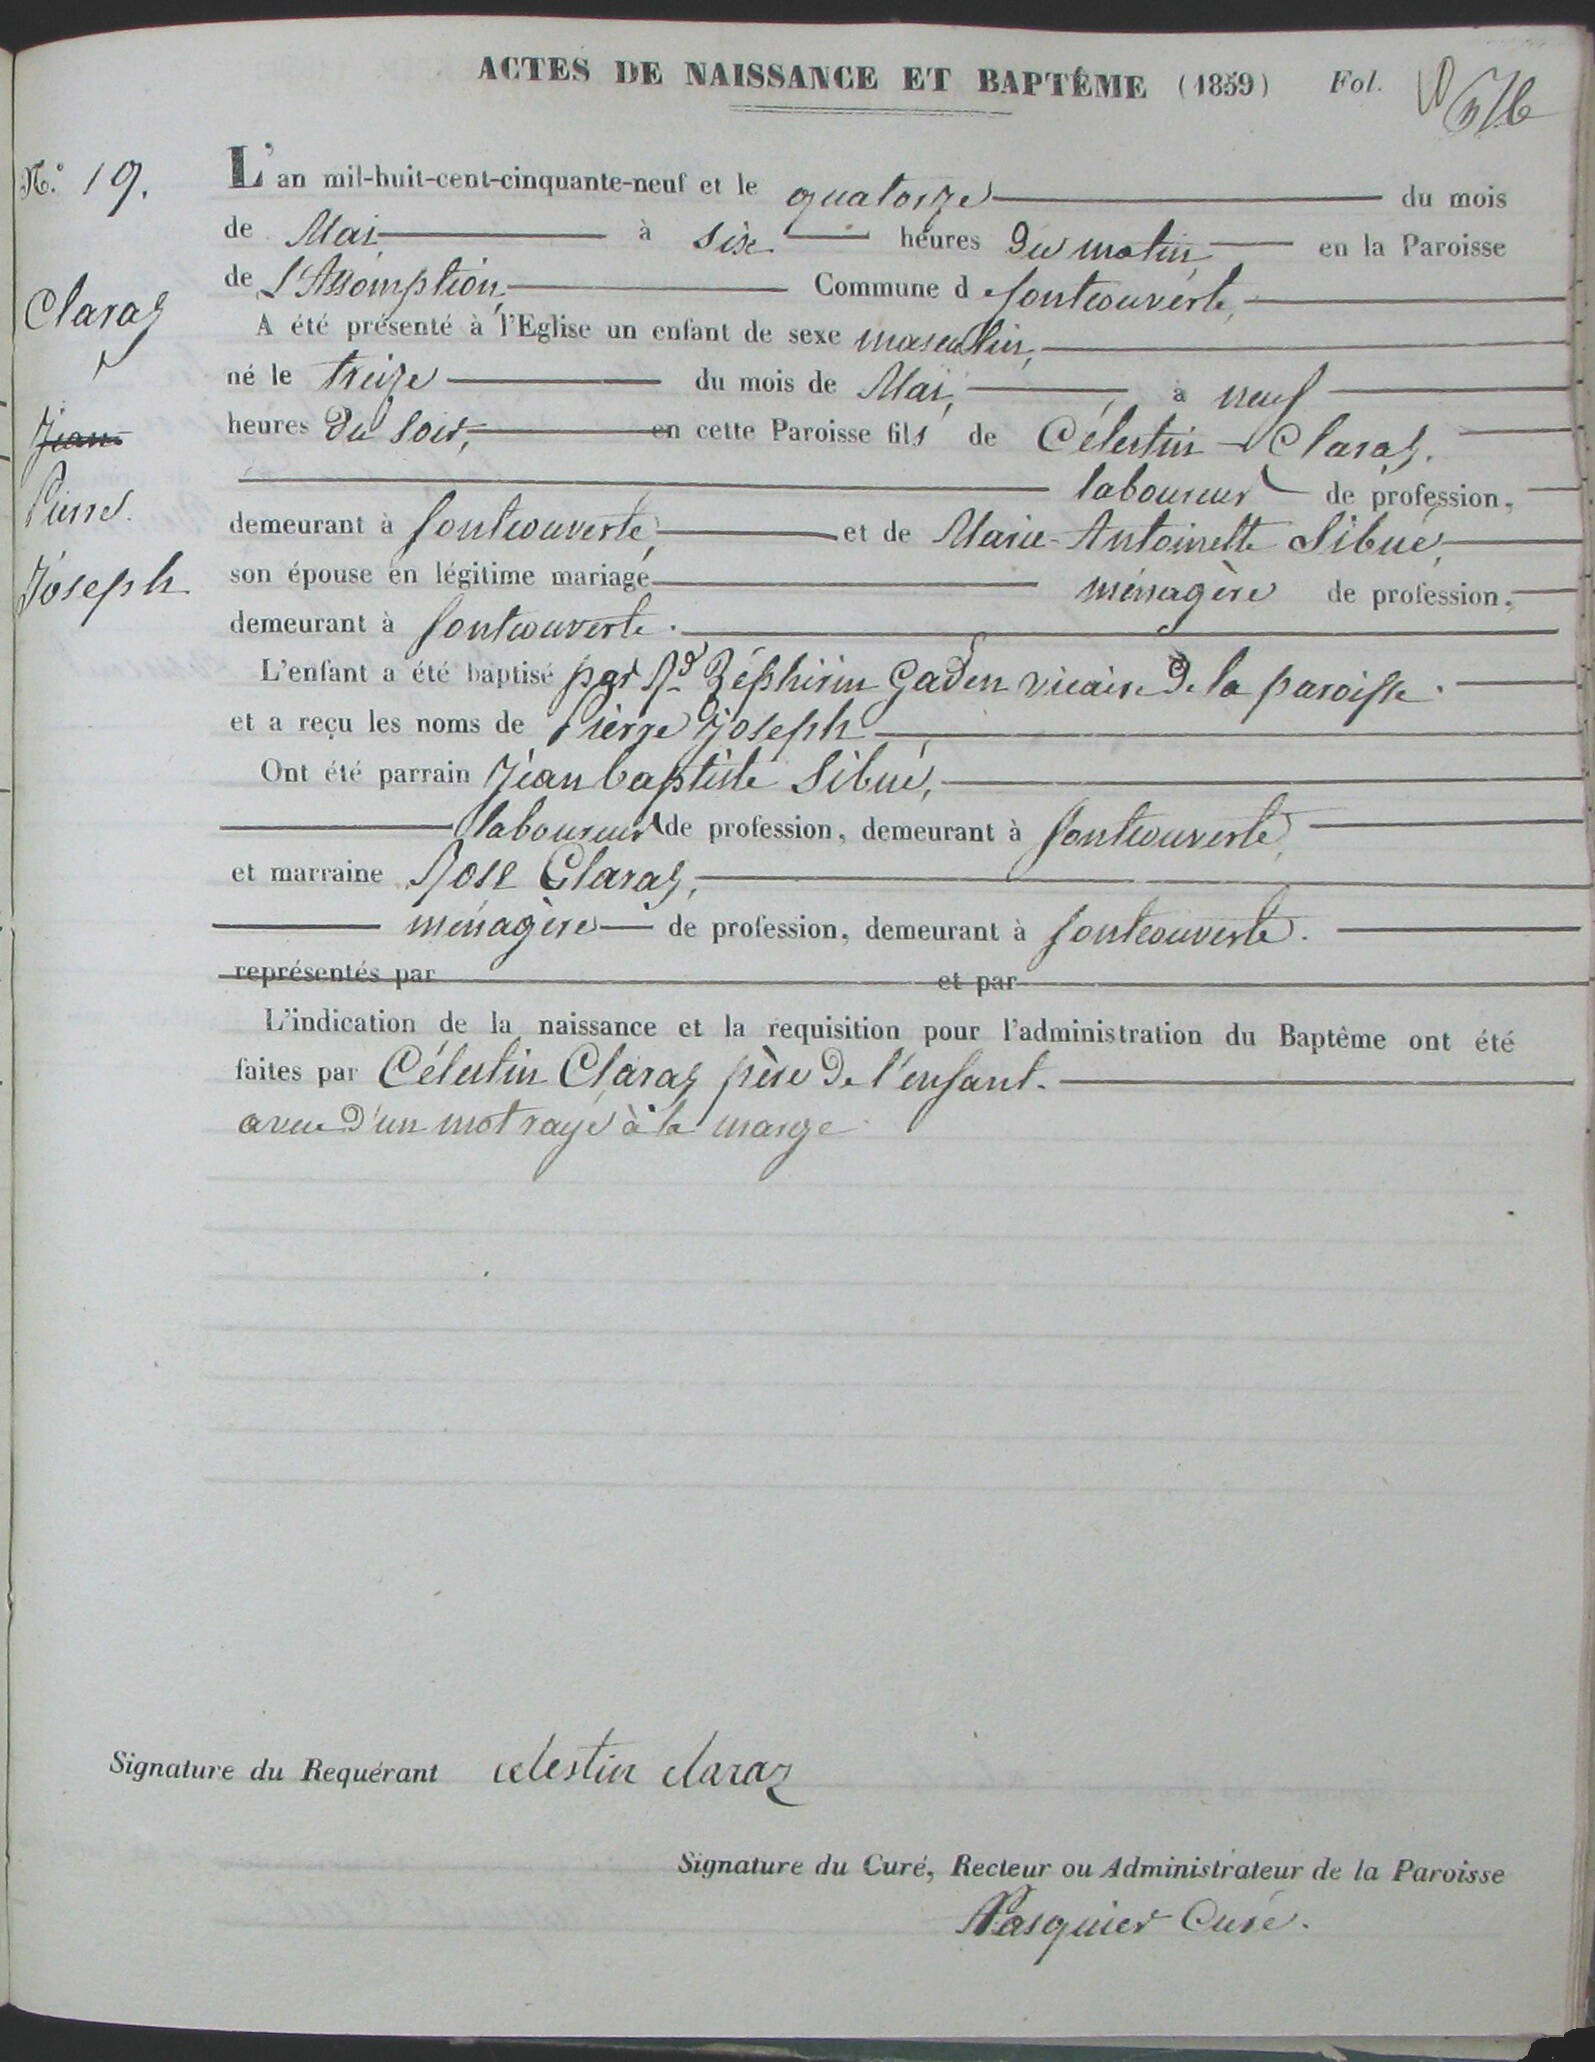 ACTES DE NAISSANCE ET BAPTÊME (1859) Fol.
N.° 19.
Claraz
Jean
Pierre
Joseph
L'an mil-huit-cent-cinquante-neuf et le quatorze du mois
de Mai à six heures du matin en la Paroisse
de L'Assomption, Commune d e fontcouverte,
A été présenté à l'Eglise un enfant de sexe masculin,
né le treize du mois de Mai, à neuf
heures du soir, en cette Paroisse fils de Célestin Claraz.
laboureur de profession,
demeurant à fontcouverte, et de Marie-Antoinette Sibué,
son épouse en légitime mariage ménagère de profession,
demeurant à fontcouverte.
L'enfant a été baptisé par Rd Zéphirin Gaden vicaire de la paroisse.
et a reçu les noms de Pierre Joseph
Ont été parrain Jean baptiste Sibué,
laboureur de profession, demeurant à fontcouverte,
et marraine Rose Claraz,
ménagère de profession, demeurant à fontcouverte.
représentés par et par
L'indication de la naissance et la requisition pour l'administration du Baptême ont été
faites par Célestin Claraz père de l'enfant.
aveu d'un mot rayé à la marge
Signature du Requérant celestin claraz
Signature du Curé, Recteur ou Administrateur de la Paroisse
Pasquier Curé.